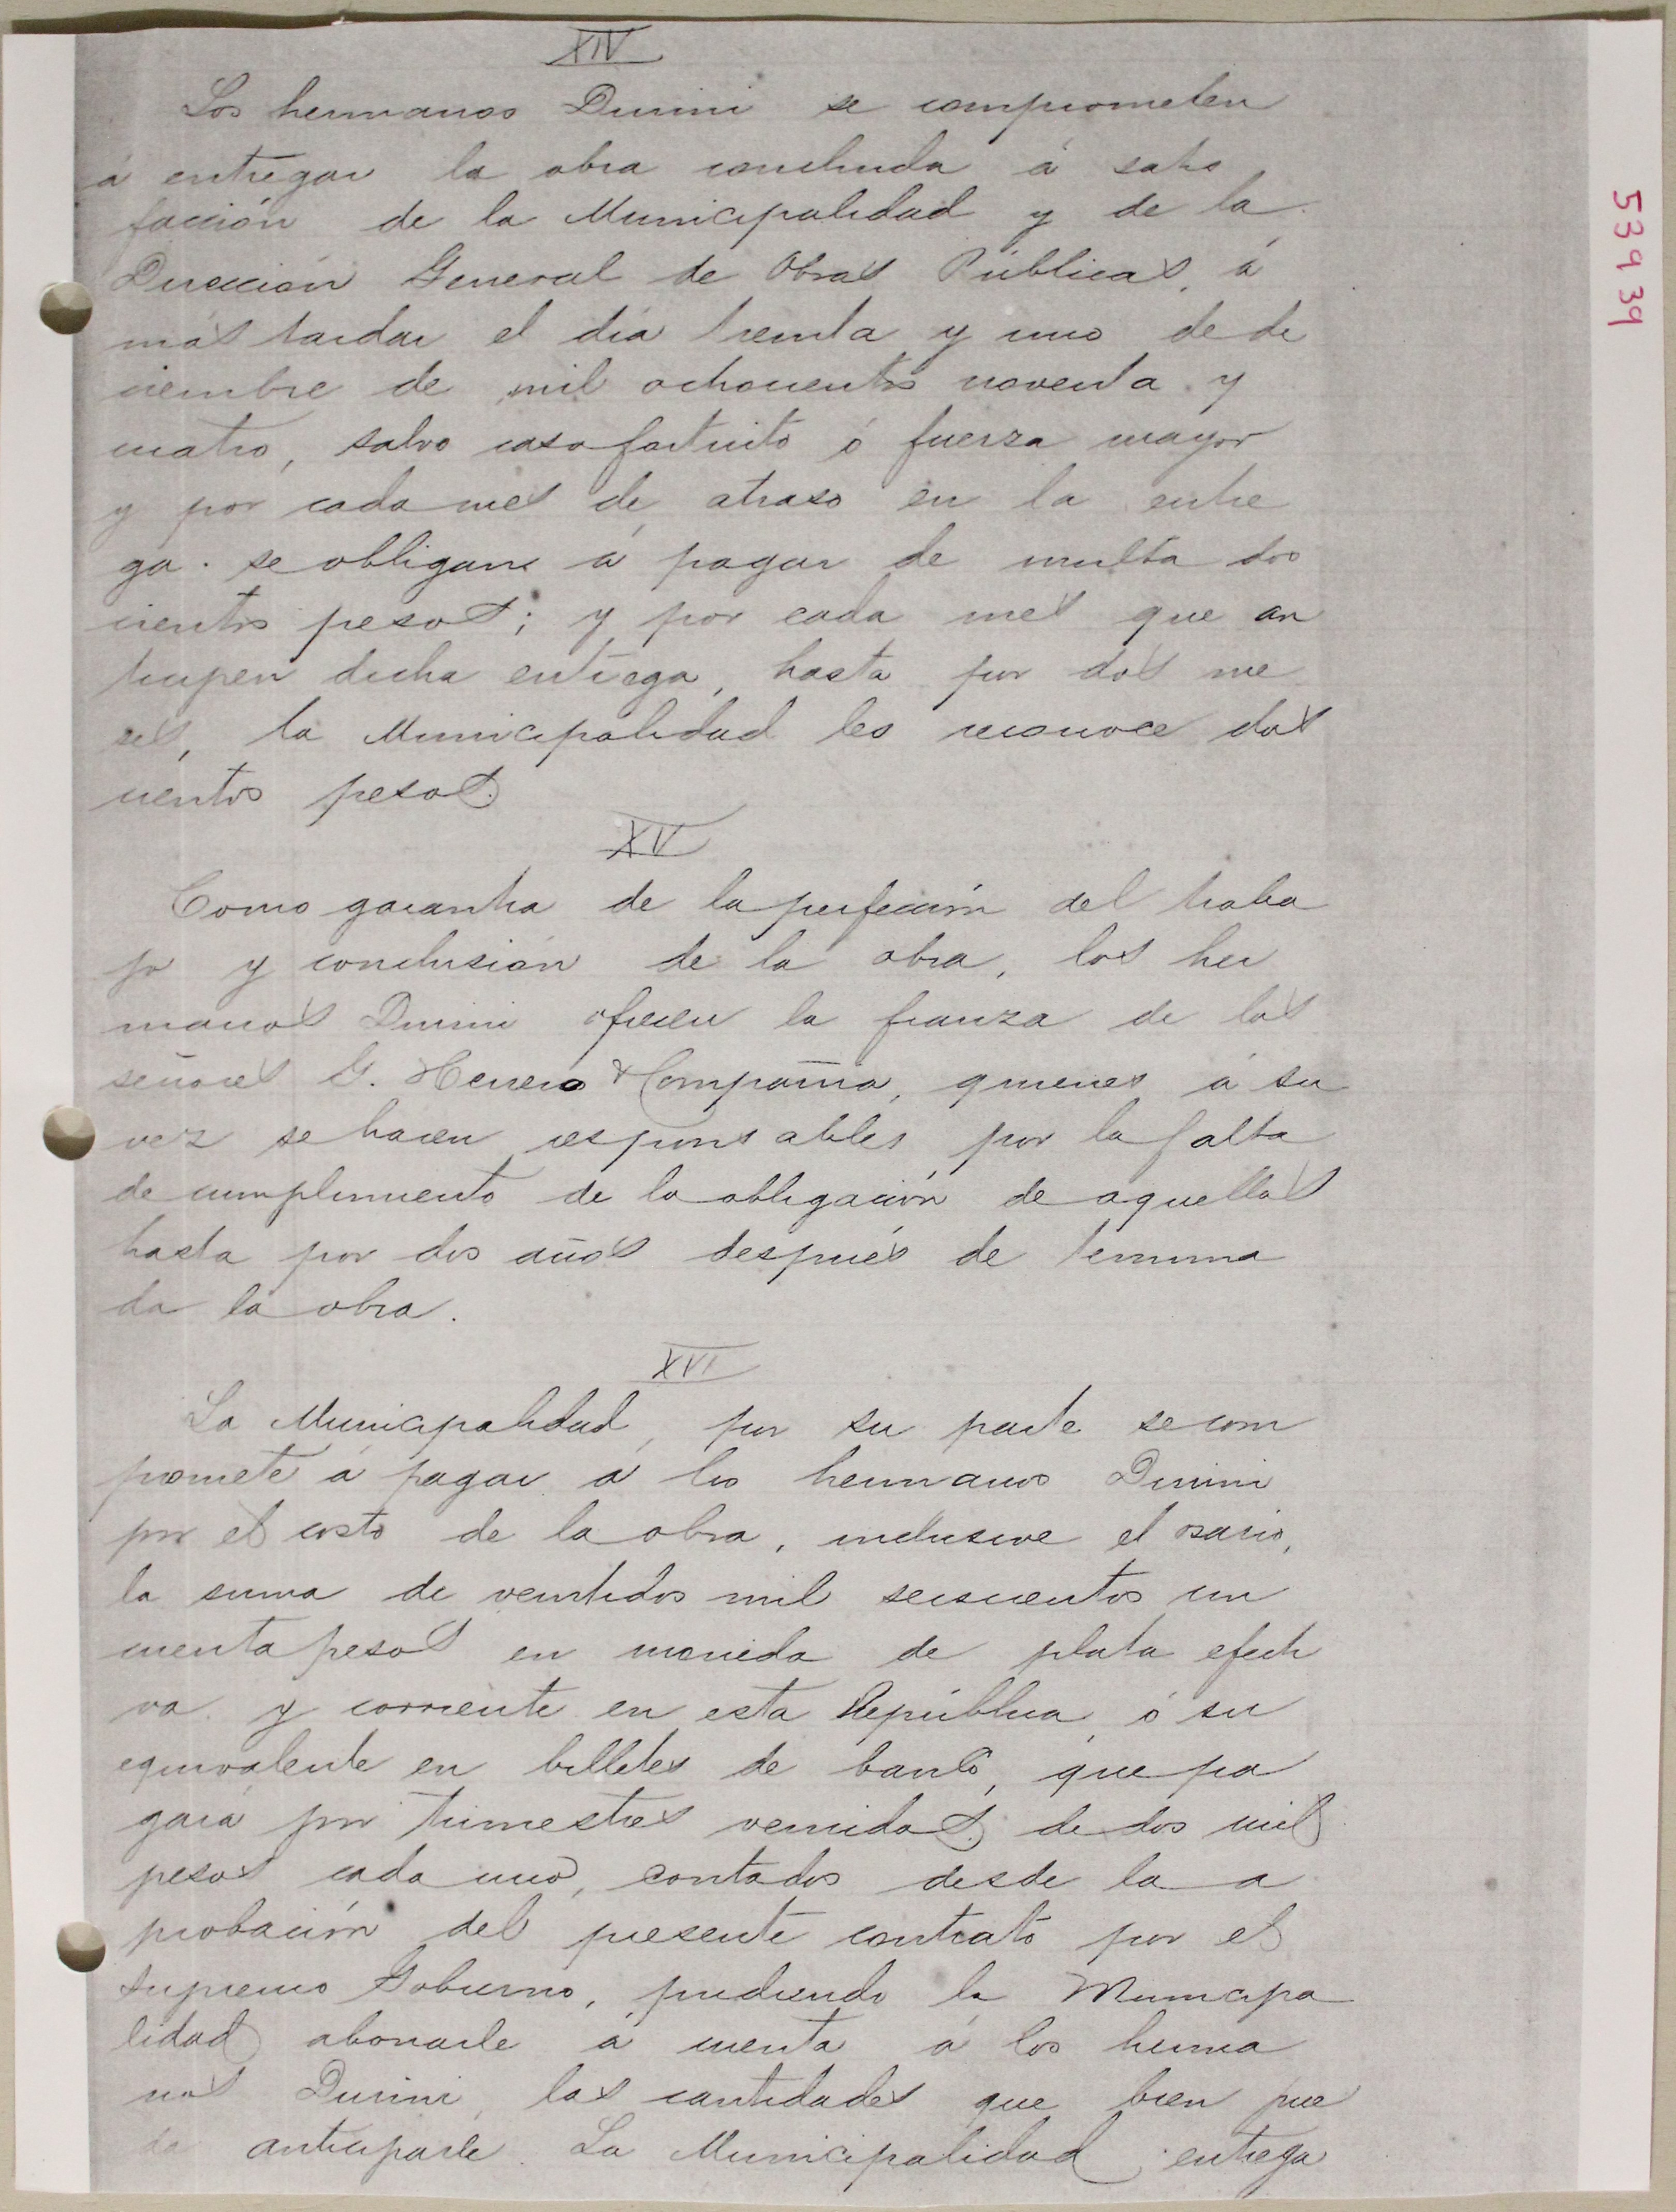 XIV
Los hermanos Durini se comprometen
á entregar la obra concluida á satis
facción de la Municipalidad y de la
Dirección General de Obras Públicas, á
más tardar el día treinta y uno de di
ciembre de mil ochocientos noventa y
cuatro, salvo caso fortuito ó fuerza mayor
y por cada mes de atraso en la entre
ga se obligan á pagar de multa dos
cientos pesos; y por cada mes que an
ticipen dicha entrega, hasta por dos me
ses, la Municipalidad les reconoce dos
cientos pesos.
XV
Como garantía de la perfección del traba
jo y conclusión de la obra, los her
manos Durini ofrecen la fianza de los
señores G. Herrero & Compañía, quienes á su
vez se hacen responsables por la falta
de cumplimiento de la obligación de aquellos
hasta por dos años después de termina
da la obra.
XVI
La Municipalidad, por su parte se com
promete á pagar á los hermanos Durini
por el costo de la obra, inclusive el osario,
la suma de veintidos mil seiscientos cin
cuenta pesos en moneda de plata efecti
va y corriente en esta República ó su
equivalente en billetes de banco, que pa
gará por trimestres vencidos, de dos mil
pesos cada uno, contados desde la a
probación del presente contrato por el
Supremo Gobierno, pudiendo la Municipa
lidad abonarle á cuenta á los herma
nos Durini, las cantidades que bien pue
da anticiparle. La Municipalidad entrega
53939